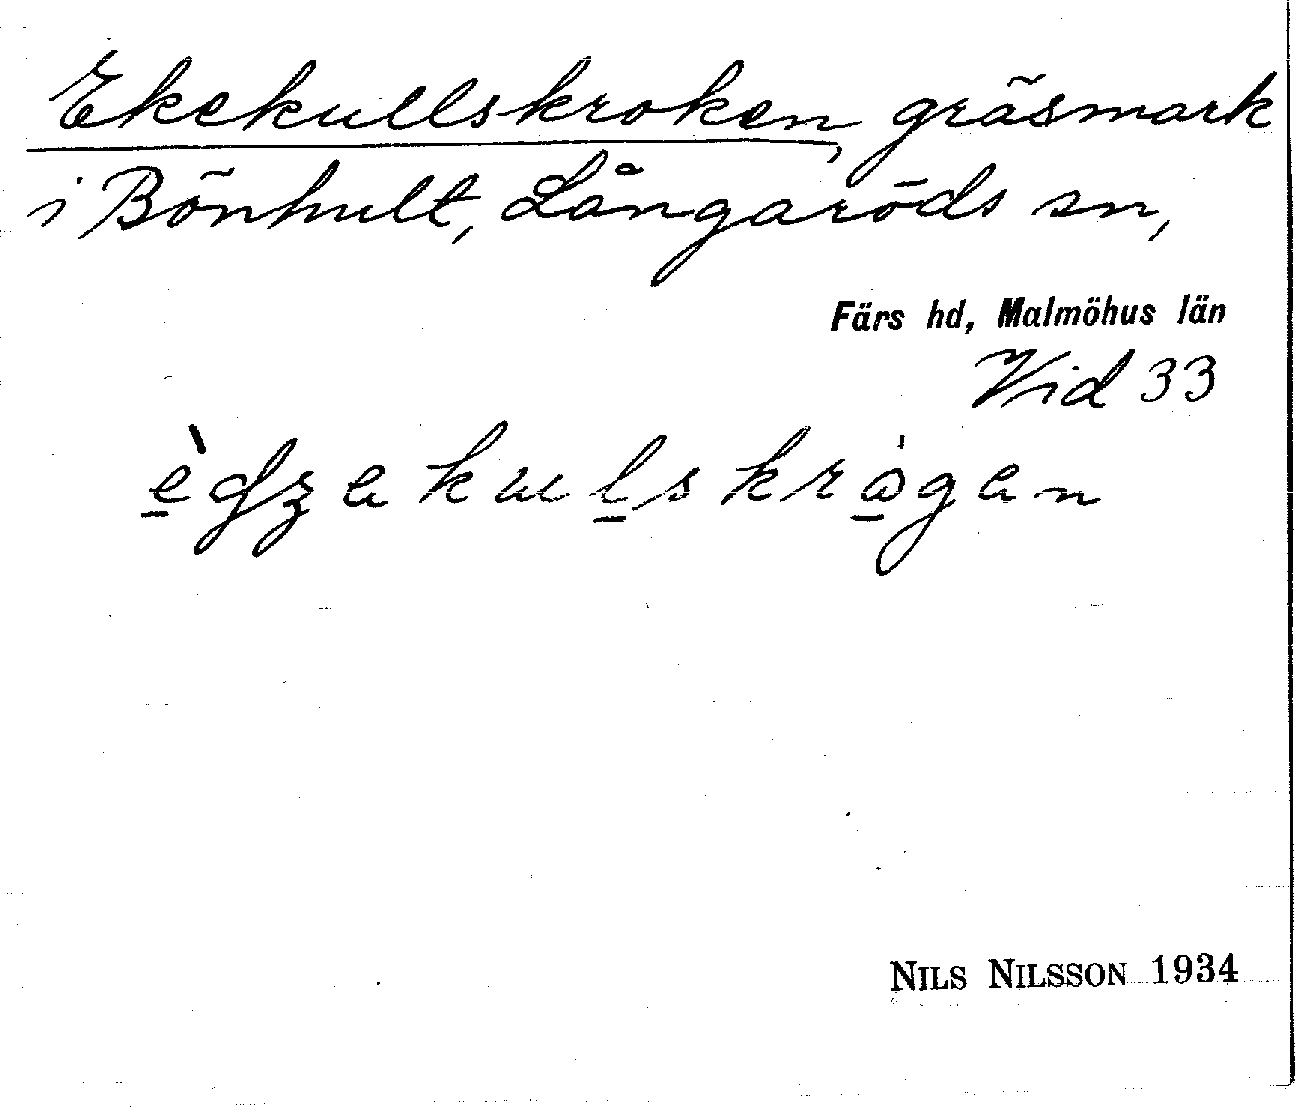 Ekekullskroken, gräsmark
i Bönhult, Långaröds sn,
Färs hd, Malmöhus län
Vid 33
NILS NILSSON 1934